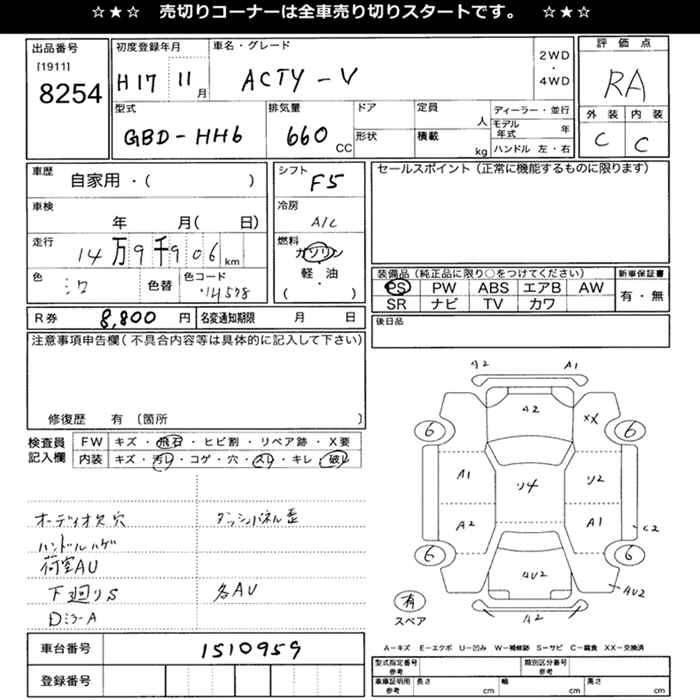 ☆★☆ 売切りコーナーは全車売り切りスタートです。 ☆★☆
出品番号
[1911]
8254
初度登録年月
H17 11月
車名・グレード
ACTY-V
2WD
・
4WD
評価点
RA
外装 内装
C C
型式
GBD-HH6
排気量
660 CC
ドア
形状
定員
人
積載
kg
ディーラー・並行
モデル年式 年
ハンドル 左・右
車歴
自家用・( )
シフト
F5
セールスポイント（正常に機能するものに限ります）
車検
年 月( 日)
冷房
A/C
走行
14万9千906km
燃料
ガソリン
軽・油
( )
色
シロ
色替
色コード
装備品（純正品に限り○をつけてください）
新車保証書
PS PW ABS エアB AW
SR ナビ TV カワ
有・無
R券 8,800円
名変通知期限 月 日
後日品
注意事項申告欄（不具合内容等は具体的に記入して下さい）
修復歴 有〔箇所 〕
検査員記入欄
FW キズ・飛石・ヒビ割・リペア跡・X要
内装 キズ・汚レ・コゲ・穴・スレ・キレ・破レ
オーディオ欠穴 ダッシュパネル歪
ハンドルハゲ
荷室AU
下廻りS 各AU
Dミラ-A
A2 A1
A2 XX
6 6
A1 ソ4 ソ2
A2 A1 C2
6 6
4U2 4U2
A2
有
スペア
A-キズ E-エクボ U-凹み W-補修跡 S-サビ C-腐食 XX-交換済
車台番号 1510959
登録番号
型式指定番号 参考
類別区分番号 参考
車庫証明用 参考
長さ cm
幅 cm
高さ cm